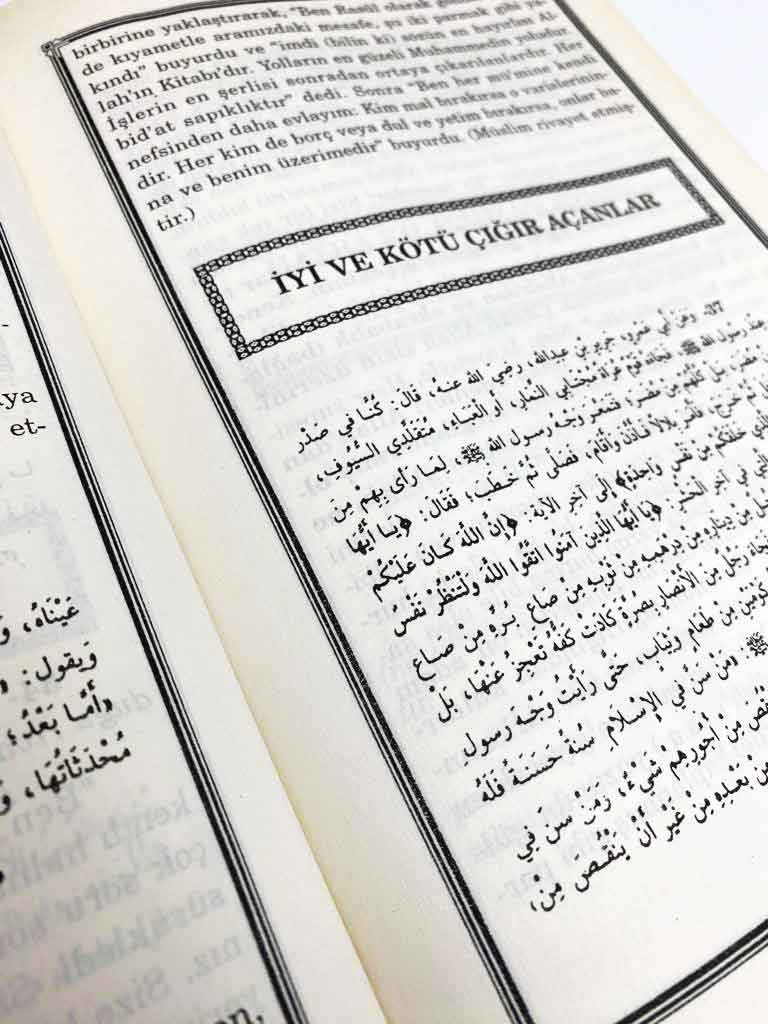 birbirine yaklaştırarak, "Ben Resûl olarak
de kıyametle aramızdaki mesafe, şu iki parmak gibi ya-
kındı" buyurdu ve "imdi (bilin ki) sözün en hayırlısı Al-
lah'ın Kitabı'dır. Yolların en güzeli Muhammedin yoludur.
İşlerin en şerlisi sonradan ortaya çıkarılanlardır. Her
bid'at sapıklıktır" dedi. Sonra "Ben her mü'mine kendi
nefsinden daha evlayım: Kim mal bırakırsa o varislerinin-
dir. Her kim de borç veya dul ve yetim bırakırsa, onlar ba-
na ve benim üzerimedir" buyurdu. (Müslim rivayet etmiş-
tir.)
İYİ VE KÖTÜ ÇIĞIR AÇANLAR
37- وَعَنْ أَبِي عَمْرٍو، جَرِيرِ بْنِ عبدِالله، رضي الله عنهُ، قَالَ: كُنَّا في صَدْرِ
رسولِ الله ﷺ، فَجَاءَهُ قَوْمٌ عُرَاةٌ مُجْتَابي النِّمارِ، أَو العَبَاءِ، مُتَقَلِّدي السُّيُوفِ،
مُضَرَ، بَلْ كُلُّهُمْ مِنْ مُضَرَ؛ فَتَمَعَّرَ وَجْهُ رسول الله ﷺ، لِمَا رَأَى بِهِمْ مِنَ
ثُمَّ خَرَجَ، فَأَمَرَ بِلَالاً فَأَذَّنَ وَأَقَامَ، فَصَلَّى ثُمَّ خَطَبَ؛ فَقَالَ: ﴿يَا أَيُّهَا
الَّذِي خَلَقَكُمْ مِنْ نَفْسٍ وَاحِدَةٍ﴾ إلى آخِرِ الآيَةِ: ﴿إِنَّ اللَّهَ كَانَ عَلَيْكُمْ
الَّتي في آخِرِ الحَشْرِ: ﴿يَا أَيُّهَا الَّذِينَ آمَنُوا اتَّقُوا اللَّهَ وَلْتَنْظُرْ نَفْسٌ
مِنْ دِينَارِهِ مِنْ دِرْهَمِهِ مِنْ ثَوْبِهِ مِنْ صَاعِ بُرِّهِ مِنْ صَاعِ
رَجُلٌ مِنَ الأَنْصَارِ بِصُرَّةٍ كَادَتْ كَفُّهُ تَعْجِزُ عَنْهَا، بَلْ
كَوْمَيْنِ مِنْ طَعَامٍ وَثِيَابٍ، حَتَّى رَأَيْتُ وَجْهَ رسولِ
ﷺ: «مَنْ سَنَّ في الإِسْلَامِ سُنَّةً حَسَنَةً فَلَهُ
مِنْ أُجُورِهِمْ شَيْءٌ، وَمَنْ سَنَّ فِي
مِنْ بَعْدِهِ مِنْ غَيْرِ أَنْ يَنْقُصَ مِنْ
et-
عَيْنَاهُ،
وَيقول: «
«أَمَّا بَعْدُ؛
مُحْدَثَاتُهَا،